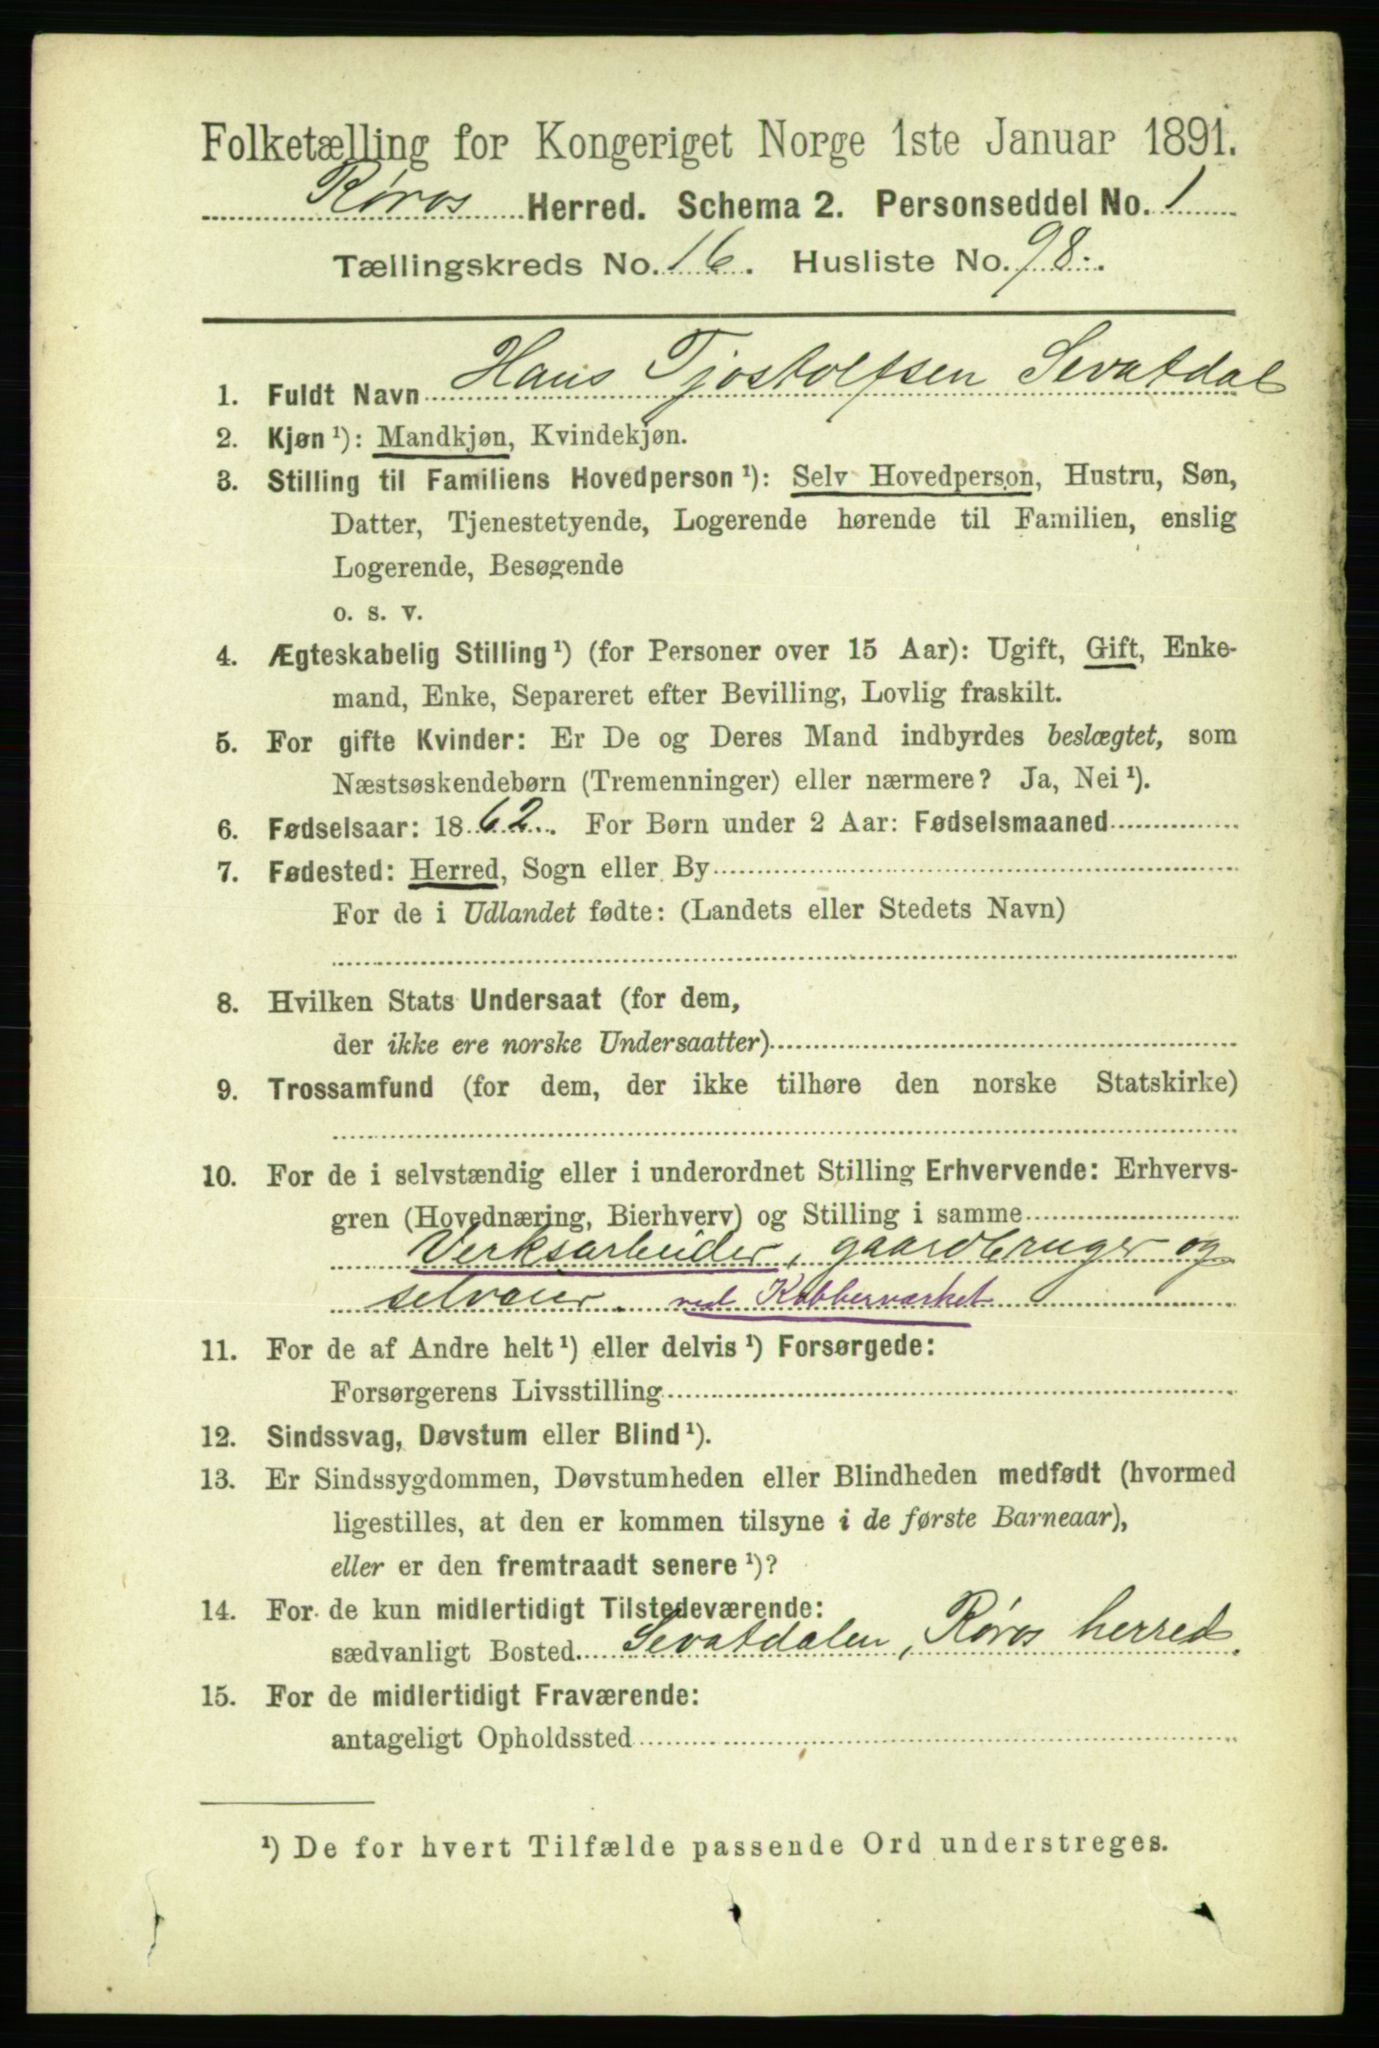 Folketælling for Kongeriget Norge 1ste Januar 1891.
Røros Herred. Schema 2. Personseddel No. 1
Tællingskreds No. 16. Husliste No. 98.
1. Fuldt Navn Hans Tjostolfsen Sevatdal
2. Kjøn ¹): Mandkjøn, Kvindekjøn.
3. Stilling til Familiens Hovedperson ¹): Selv Hovedperson, Hustru, Søn,
Datter, Tjenestetyende, Logerende hørende til Familien, enslig
Logerende, Besøgende
o. s. v.
4. Ægteskabelig Stilling ¹) (for Personer over 15 Aar): Ugift, Gift, Enke-
mand, Enke, Separeret efter Bevilling, Lovlig fraskilt.
5. For gifte Kvinder: Er De og Deres Mand indbyrdes beslægtet, som
Næstsøskendebørn (Tremenninger) eller nærmere? Ja, Nei ¹).
6. Fødselsaar: 1862. For Børn under 2 Aar: Fødselsmaaned
7. Fødested: Herred, Sogn eller By
For de i Udlandet fødte: (Landets eller Stedets Navn)
8. Hvilken Stats Undersaat (for dem,
der ikke ere norske Undersaatter)
9. Trossamfund (for dem, der ikke tilhøre den norske Statskirke)
10. For de i selvstændig eller i underordnet Stilling Erhvervende: Erhvervs-
gren (Hovednæring, Bierhverv) og Stilling i samme
Verksarbeider, gaardbruger og
selveier. ved Kobberværket
11. For de af Andre helt ¹) eller delvis ¹) Forsørgede:
Forsørgerens Livsstilling
12. Sindssvag, Døvstum eller Blind ¹).
13. Er Sindssygdommen, Døvstumheden eller Blindheden medfødt (hvormed
ligestilles, at den er kommen tilsyne i de første Barneaar),
eller er den fremtraadt senere ¹)?
14. For de kun midlertidigt Tilstedeværende:
sædvanligt Bosted Sevatdalen, Røros herred.
15. For de midlertidigt Fraværende:
antageligt Opholdssted
¹) De for hvert Tilfælde passende Ord understreges.